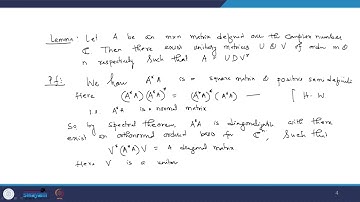 Lemma: Let A be an mxn matrix defined over the complex numbers
ℂ. Then there exist unitary matrices U & V of order m &
n respectively such that A = U D V*
Pf: We know A*A is a square matrix & positive semi definite
Here (A*A)(A*A)* = (A*A)*(A*A) — [H.W
i.e. A*A is a normal matrix
So by spectral theorem A*A is diagonalizable with there
exist an orthonormal ordered basis for ℂⁿ, such that
V*(A*A)V = A diagonal matrix
Here V is a unitar
swayam
4